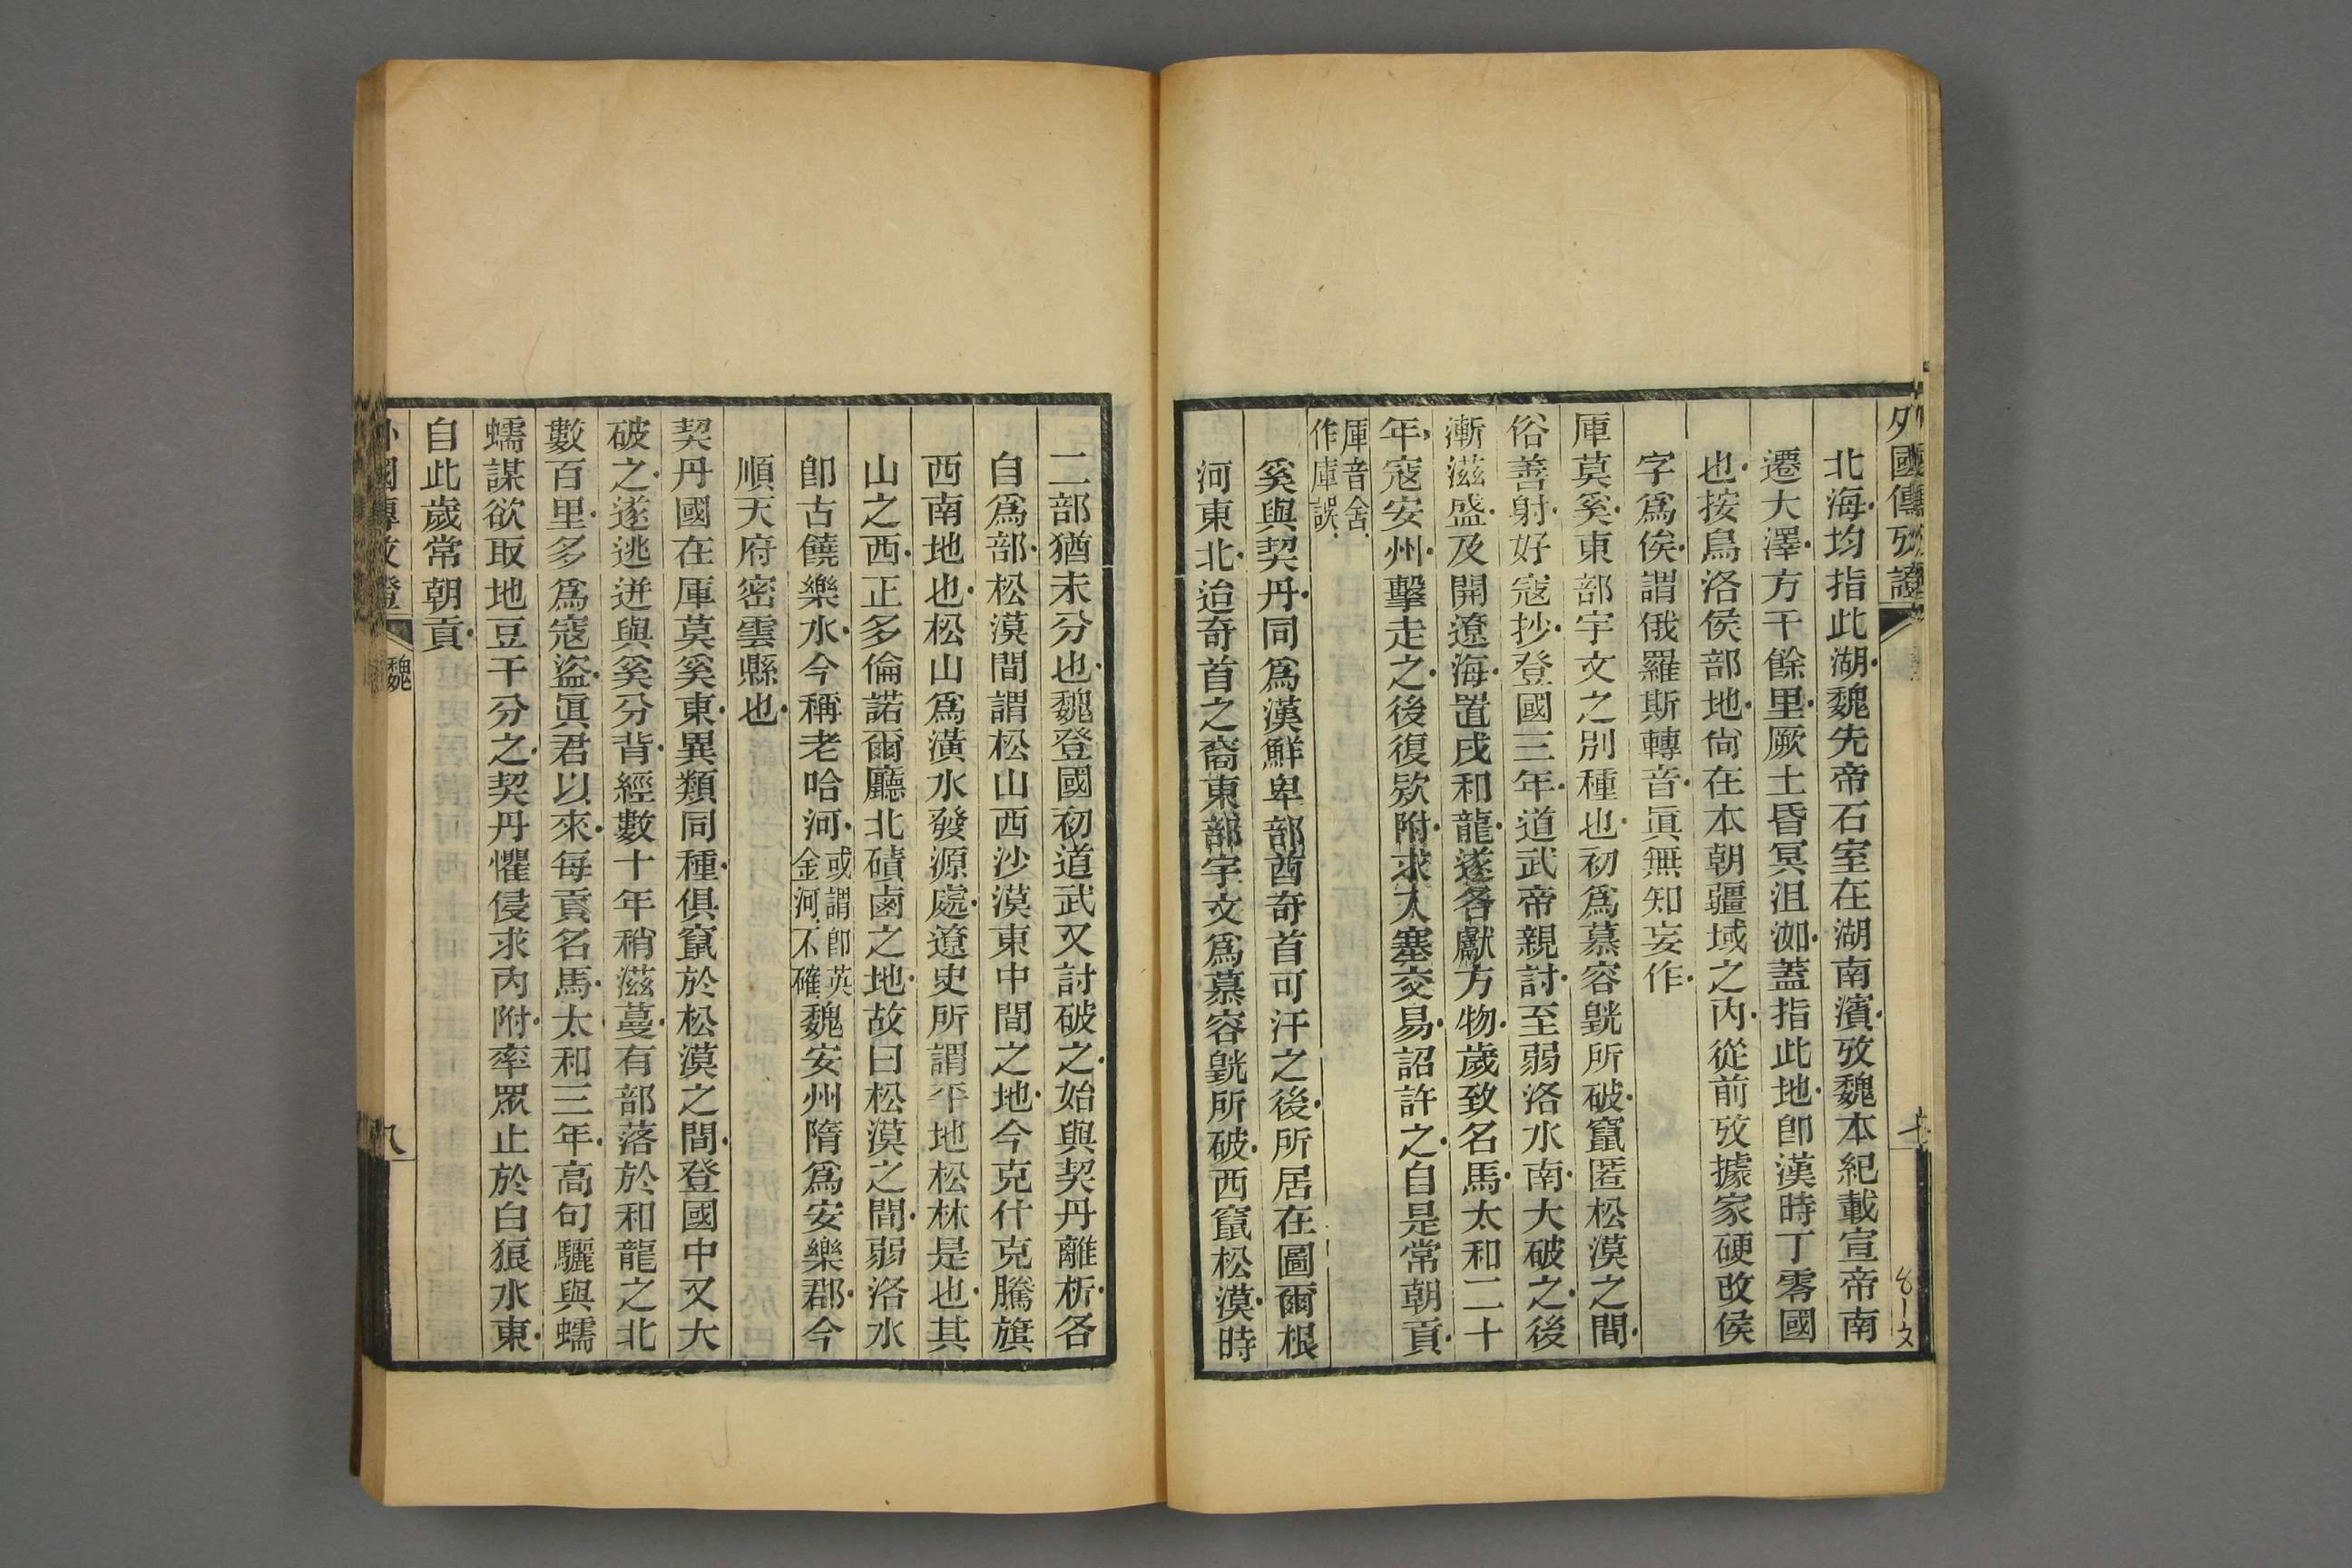 外國傳攷證
七
北海均指此湖魏先帝石室在湖南濱攷魏本紀載宣帝南
遷大澤方千餘里厥土昏冥沮洳蓋指此地卽漢時丁零國
也按烏洛侯部地尙在本朝疆域之內從前攷據家硬改侯
字爲俟謂俄羅斯轉音眞無知妄作
厙莫奚東部宇文之別種也初爲慕容皝所破竄匿松漠之間
俗善射好寇抄登國三年道武帝親討至弱洛水南大破之後
漸滋盛及開遼海置戍和龍遂各獻方物歲致名馬太和二十
年寇安州擊走之後復欵附求入塞交易詔許之自是常朝貢
厙音舍
作庫誤
奚與契丹同爲漢鮮卑部酋奇首可汗之後所居在圖爾根
河東北迨奇首之裔東部宇文爲慕容皝所破西竄松漠時
二部猶未分也魏登國初道武又討破之始與契丹離析各
自爲部松漠間謂松山西沙漠東中間之地今克什克騰旗
西南地也松山爲潢水發源處遼史所謂平地松林是也其
山之西正多倫諾爾廳北磧鹵之地故曰松漠之間弱洛水
卽古饒樂水今稱老哈河或謂卽英金河不確魏安州隋爲安樂郡今
順天府密雲縣也
契丹國在厙莫奚東異類同種俱竄於松漠之間登國中又大
破之遂逃迸與奚分背經數十年稍滋蔓有部落於和龍之北
數百里多爲寇盜眞君以來每貢名馬太和三年高句驪與蠕
蠕謀欲取地豆干分之契丹懼侵求內附率眾止於白狼水東
自此歲常朝貢
外國傳攷證
魏
八